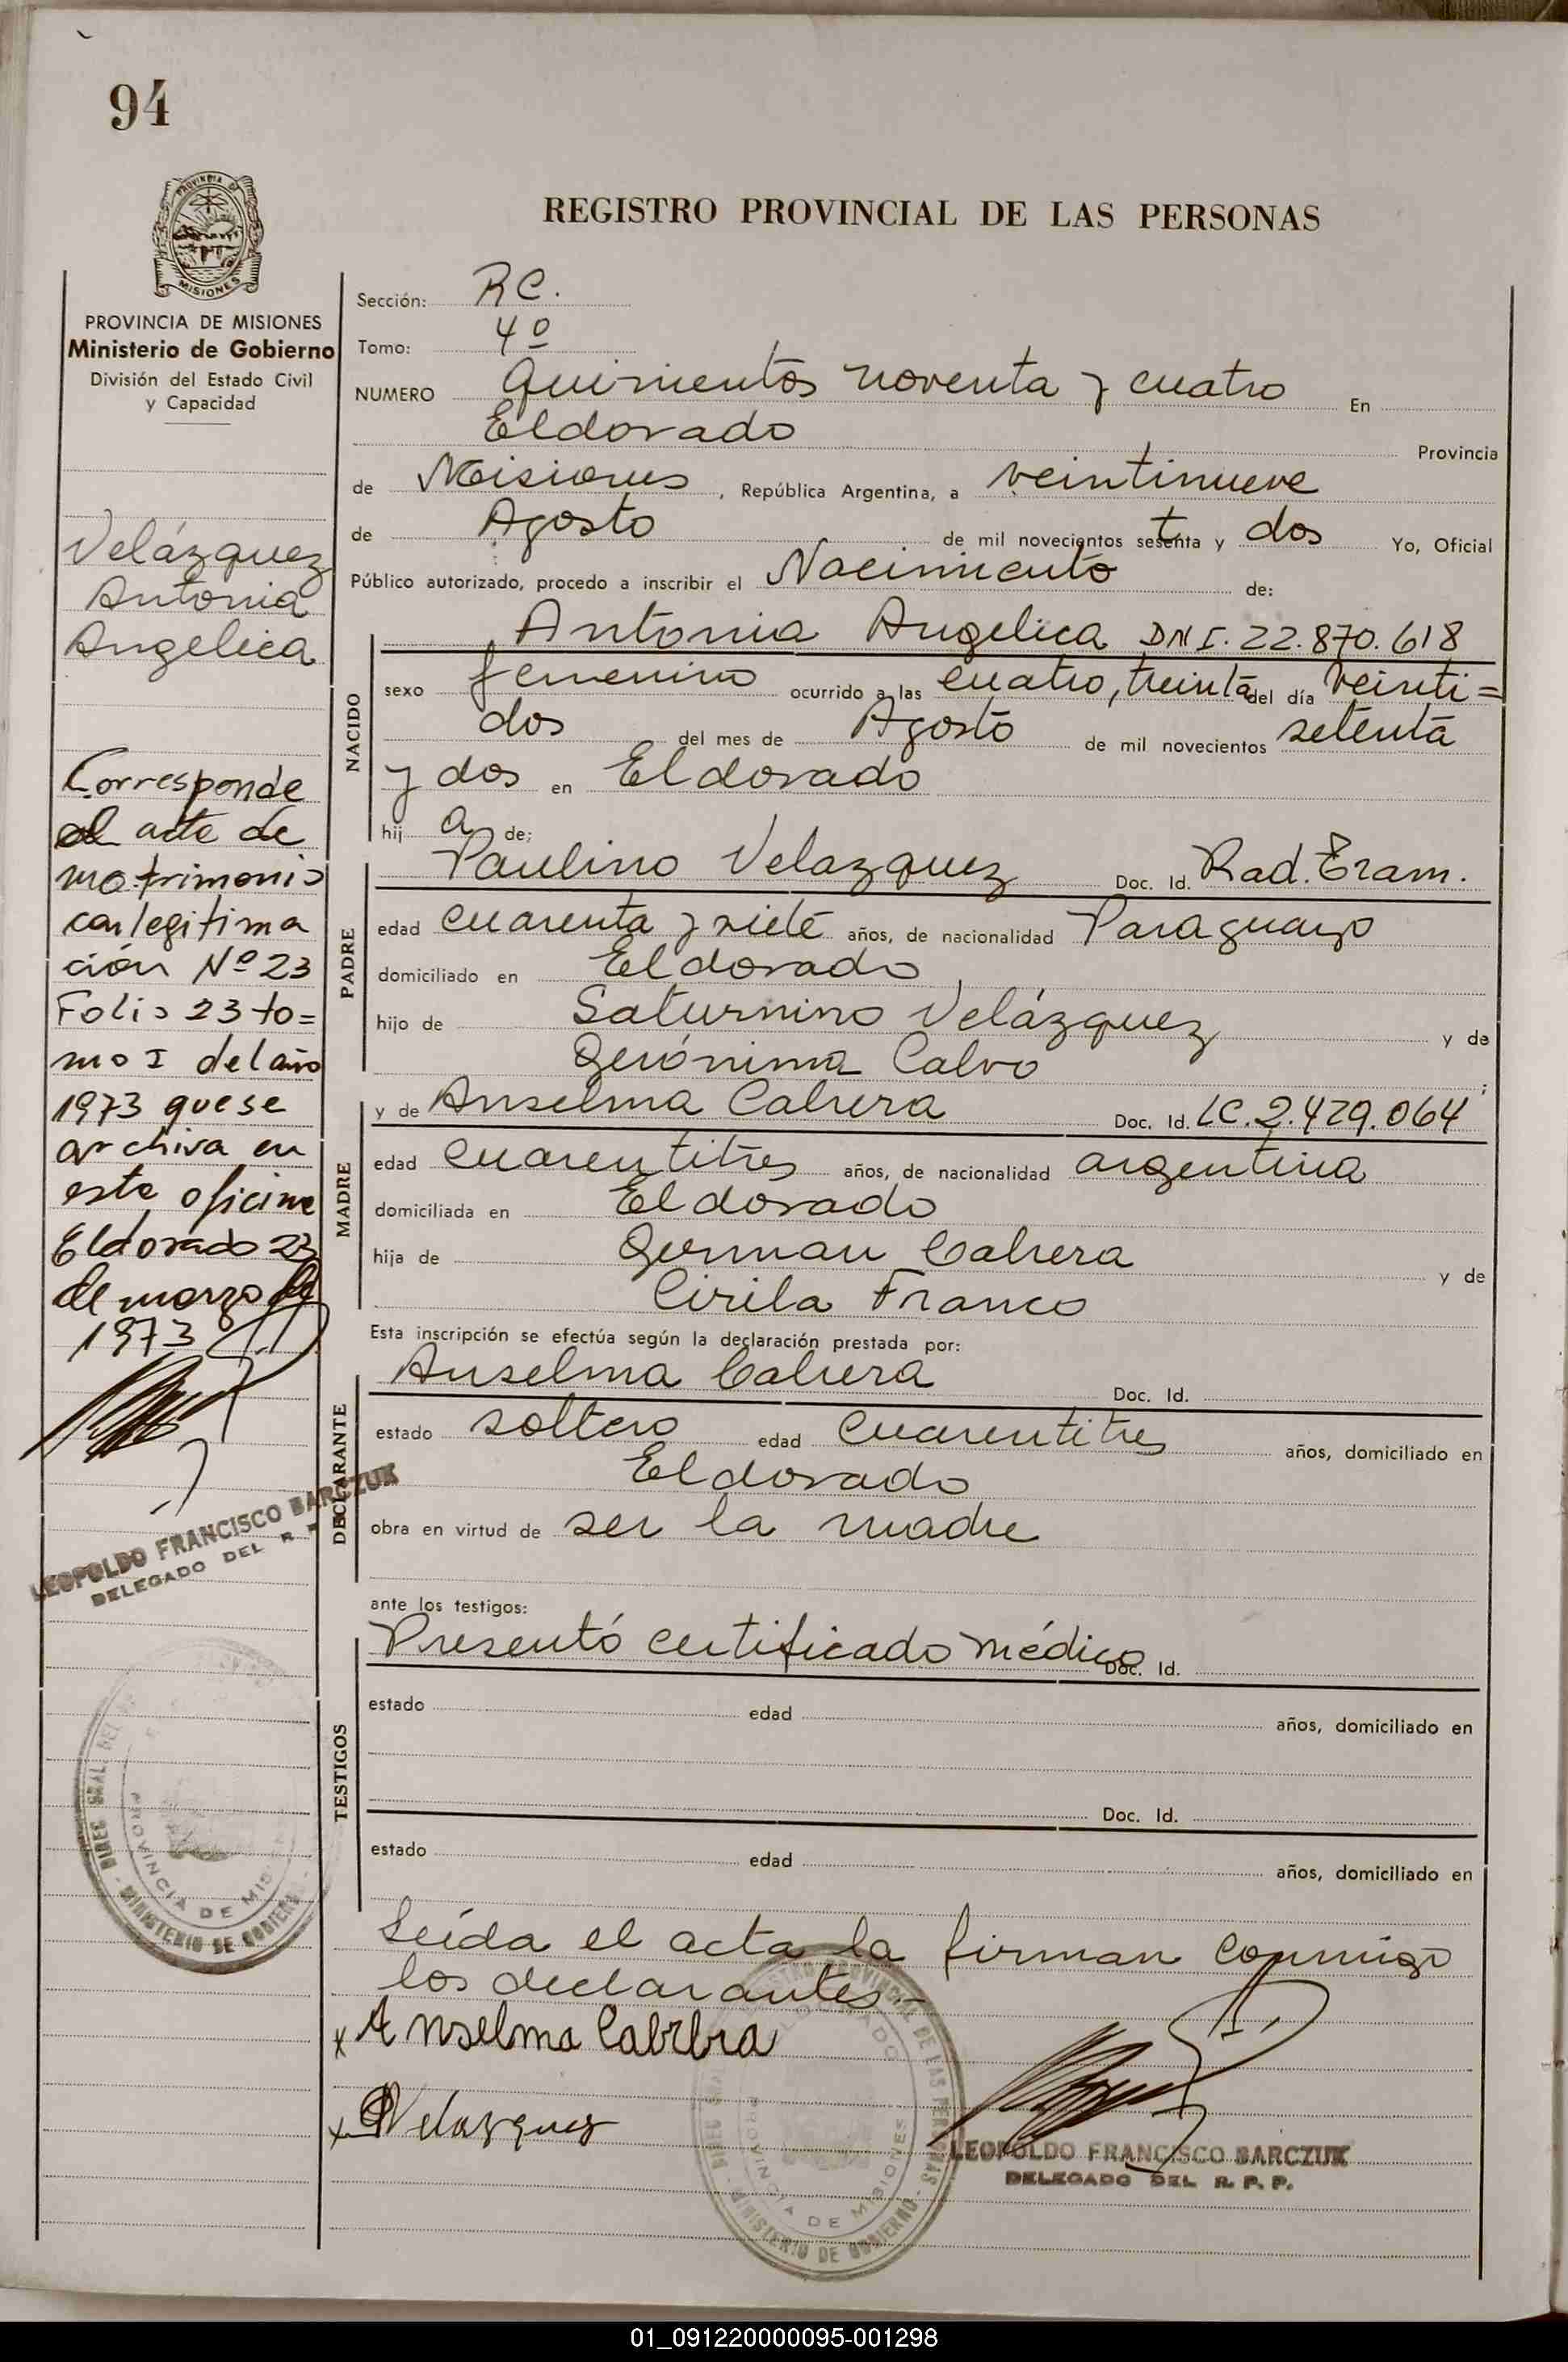 94
PROVINCIA DE
MISIONES
PROVINCIA DE MISIONES
Ministerio de Gobierno
División del Estado Civil
y Capacidad
Velázquez
Antonia
Angelica
Corresponde
al acta de
matrimonio
con legitima
ción Nº 23
Folio 23 to=
mo I del año
1973 que se
archiva en
esta oficina
Eldorado 23
de marzo de
1973
LEOPOLDO FRANCISCO BARCZUK
DELEGADO DEL R.
DIREC. GRAL. DEL
MINISTERIO DE GOBIERNO
PROVINCIA DE MIS
REGISTRO PROVINCIAL DE LAS PERSONAS
Sección: RC.
Tomo: 4º
NUMERO Quinientos noventa y cuatro En
Eldorado Provincia
de Misiones, República Argentina, a veintinueve
de Agosto de mil novecientos setenta y dos Yo, Oficial
Público autorizado, procedo a inscribir el Nacimiento de:
NACIDO
Antonia Angelica DNI. 22.870.618
sexo femenino ocurrido a las cuatro, treinta del día veinti=
dos del mes de Agosto de mil novecientos setenta
y dos en Eldorado
hij a de:
PADRE
Paulino Velazquez Doc. Id. Rad. Tram.
edad cuarenta y siete años, de nacionalidad Paraguayo
domiciliado en Eldorado
hijo de Saturnino Velázquez y de
Gerónima Calvo ;
MADRE
y de Anselma Cabrera Doc. Id. LC. 2.429.064
edad cuarentitres años, de nacionalidad argentina
domiciliada en Eldorado
hija de German Cabrera y de
Cirila Franco
Esta inscripción se efectúa según la declaración prestada por:
DECLARANTE
Anselma Cabrera Doc. Id.
estado soltero edad cuarentitres años, domiciliado en
Eldorado
obra en virtud de ser la madre
ante los testigos:
TESTIGOS
Presentó certificado médico Doc. Id.
estado edad años, domiciliado en
Doc. Id.
estado edad años, domiciliado en
Leída el acta la firman conmigo
los declarantes.-
x Anselma Cabrera
x P Velazquez
REGISTRO PROVINCIAL DE LAS PERSONAS
ELDORADO
PROVINCIA DE MISIONES
MINISTERIO DE GOBIERNO
LEOPOLDO FRANCISCO BARCZUK
DELEGADO DEL R. P. P.
01_091220000095-001298